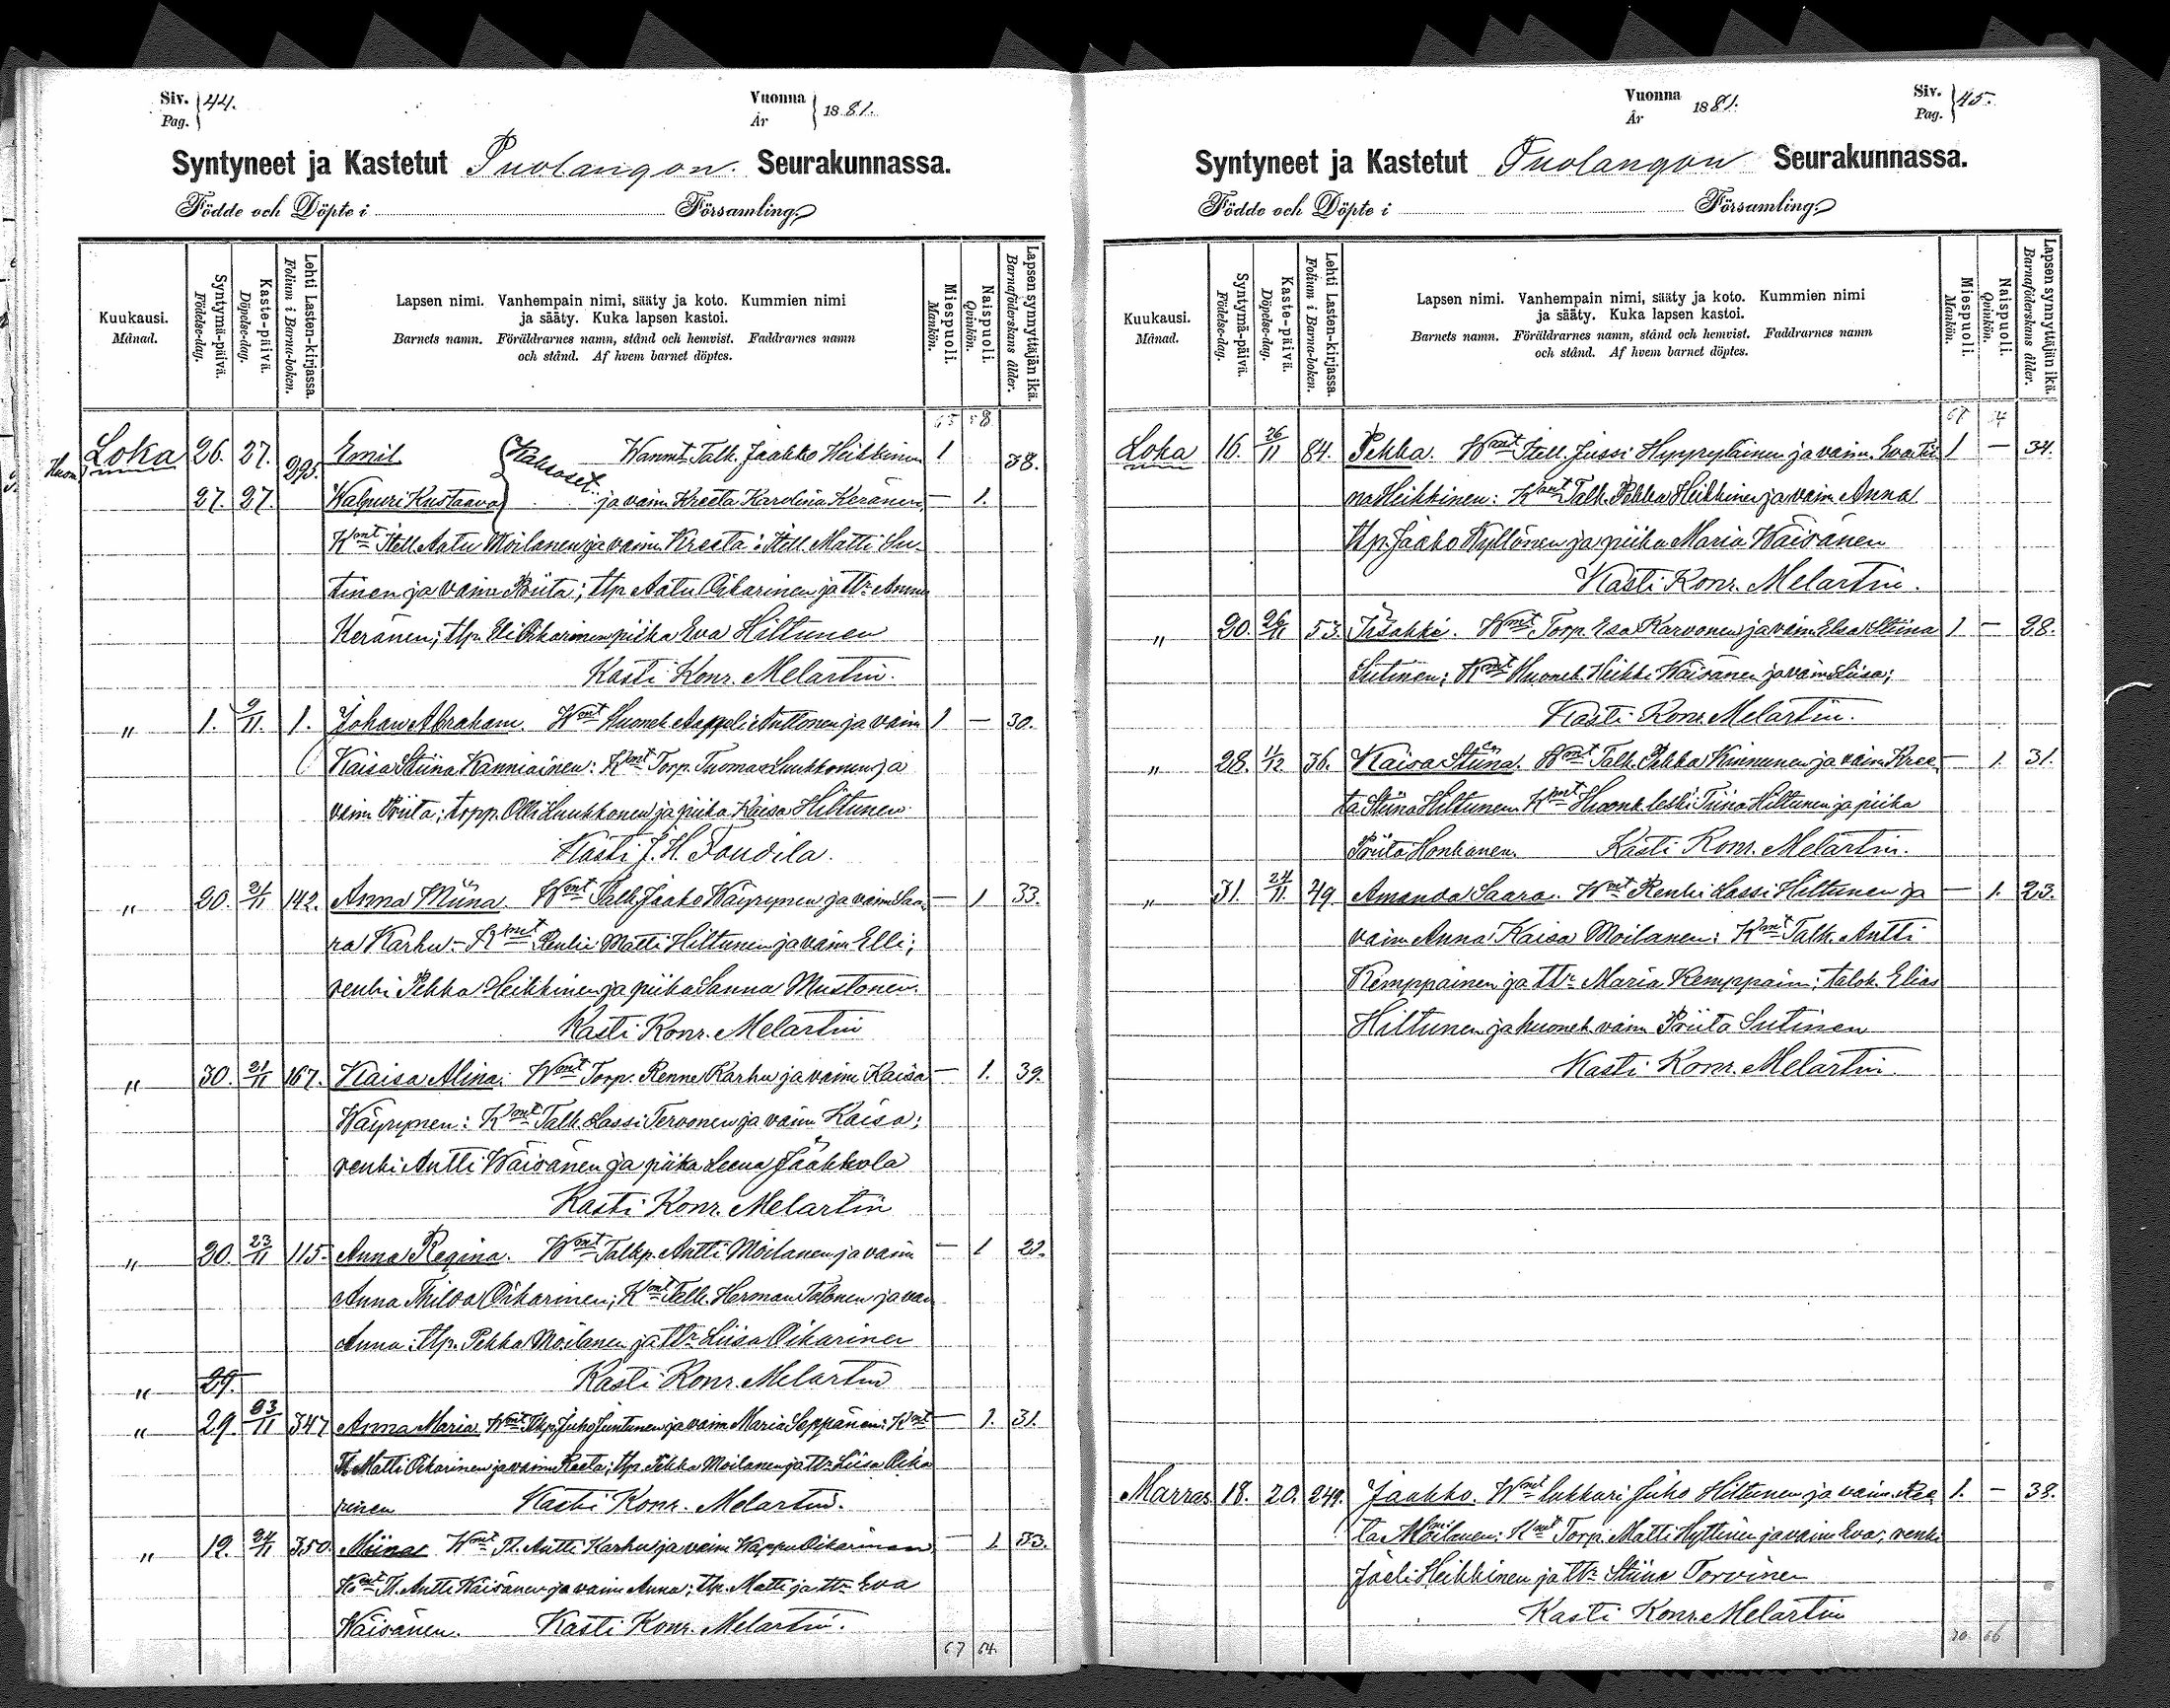 Siv. 44.
Pag.
Vuonna 1881.
År
Syntyneet ja Kastetut Puolangon. Seurakunnassa.
Födde och Döpte i Församling.
Kuukausi. Månad.
Syntymä-päivä. Födelse-dag.
Kaste-päivä. Döpelse-dag.
Lehti Lasten-kirjassa. Folium i Barna-boken.
Lapsen nimi. Vanhempain nimi, sääty ja koto. Kummien nimi
ja sääty. Kuka lapsen kastoi.
Barnets namn. Föräldrarnes namn, stånd och hemvist. Faddrarnes namn
och stånd. Af hvem barnet döptes.
Miespuoli. Mankön.
Naispuoli. Qvinkön.
Lapsen synnyttäjän ikä. Barnaföderskans ålder.
65 58
Loka 26. 27. 295. Emil Kaksoset. Wanmt Talk. Jaakko Heikkinen 1 38.
27. 27. Walpuri Kustaava ja vaim Kreeta Karolina Keränen — 1.
Kmt Itell. Aatu Moilanen ja vaim Kreeta: Itell. Matti Su-
tinen ja vaim Priita; tlp. Aatu Oikarinen ja ttr Anna
Keränen; tlp. Eli Oikarinen piika Eva Hiltunen
Kasti Konr. Melartin.
" 1. 9/11. 1. Johan Abraham. Wmt Huonek Aappeli Anttonen ja vaim 1 — 30.
Kaisa Stiina Kanniainen: Kmt Torp. Tuomas Luukkonen ja
vaim Priita; torpp. Olli Luukkonen ja piika Kaisa Hiltunen
Kasti J. H. Toudila.
" 20. 21/11 142. Anna Miina. Wmt Talk. Jaako Wäyrynen ja vaim Saa- — 1 33.
ra Karhu. Kmt Renki Matti Hiltunen ja vaim Elli;
renki Pekka Heikkinen ja piika Sanna Mustonen.
Kasti Konr. Melartin
" 30. 21/11 167. Kaisa Alina. Wmt Torp. Renne Karhu ja vaim Kaisa — 1. 39.
Wäyrynen: Kmt Talk. Lassi Tervonen ja vaim Kaisa;
renki Antti Wäisänen ja piika Leena Jaakkola
Kasti Konr. Melartin
" 20. 23/11 115. Anna Regina. Wmt Talkp. Antti Moilanen ja vaim — 1 22.
Anna Oikarinen; Kmt Talk. Herman Talonen ja vai
Anna: tlp. Pekka Moilanen ja ttr Liisa Oikarinen
" 29. Kasti Konr. Melartin
" 29. 23/11 347 Anna Maria. Wmt Tlkp. Juho Juntunen ja vaim Maria Seppänen: Kmt — 1. 31.
Tl. Matti Oikarinen ja vaim Kaeta; tlp. Pekka Moilanen ja ttr Liisa Oika
rinen Kasti Konr. Melartin.
" 12. 24/11 350. Miina Wmt Tl. Antti Karhu ja vaim Wappu Oikarinen — 1 33.
Kmt Tl. Antti Wäisänen ja vaim Anna: tlp. Matti ja ttr Eva
Wäisänen. Kasti Konr. Melartin.
67 64.
Vuonna 1881.
År
Siv. 45.
Pag.
Syntyneet ja Kastetut Puolangon Seurakunnassa.
Födde och Döpte i Församling.
Kuukausi. Månad.
Syntymä-päivä. Födelse-dag.
Kaste-päivä. Döpelse-dag.
Lehti Lasten-kirjassa. Folium i Barna-boken.
Lapsen nimi. Vanhempain nimi, sääty ja koto. Kummien nimi
ja sääty. Kuka lapsen kastoi.
Barnets namn. Föräldrarnes namn, stånd och hemvist. Faddrarnes namn
och stånd. Af hvem barnet döptes.
Miespuoli. Mankön.
Naispuoli. Qvinkön.
Lapsen synnyttäjän ikä. Barnaföderskans ålder.
Loka 16. 26/11 84. Pekka. Wmt Itell. Jussi Hyyryläinen ja vaim. Eva Ti- 1 — 34.
na Heikkinen: Kmt Talk. Pekka Heikkinen ja vaim Anna
tlp. Jaako Kyllönen ja piika Maria Wäisänen
Kasti Konr. Melartin.
" 20. 26/11 53. Iisakki. Wmt Torp. Esa Karvonen ja vaim Elsa Stiina 1 — 28.
Sutinen; Kmt Huonek Heikki Wäisänen ja vaim Liisa;
Kasti Konr. Melartin.
" 28. 11/12 36. Kaisa Stiina. Wmt Talk. Pekka Kinnunen ja vaim Kree- — 1. 31.
ta Stiina Hiltunen Kmt Huonk. leski Tiina Hiltunen ja piika
Priita Honkanen. Kasti Konr. Melartin.
" 31. 24/11. 49. Amanda Saara. Wmt Renki Lassi Hiltunen ja — 1. 23.
vaim Anna Kaisa Moilanen: Kmt Talk. Antti
Kemppainen ja ttr Maria Kemppain; talok. Elias
Hiltunen ja huonek vaim Priita Sutinen
Kasti Konr. Melartin.
Marras 18. 20. 249. Jaakko. Wmt lukkari Juho Hiltunen ja vaim Ree 1. — 38.
ta Moilanen: Kmt Torp. Matti Hyttinen ja vaim Eva; renki
Joeli Heikkinen ja ttr Stiina Torvinen
Kasti Konr. Melartin
70 66